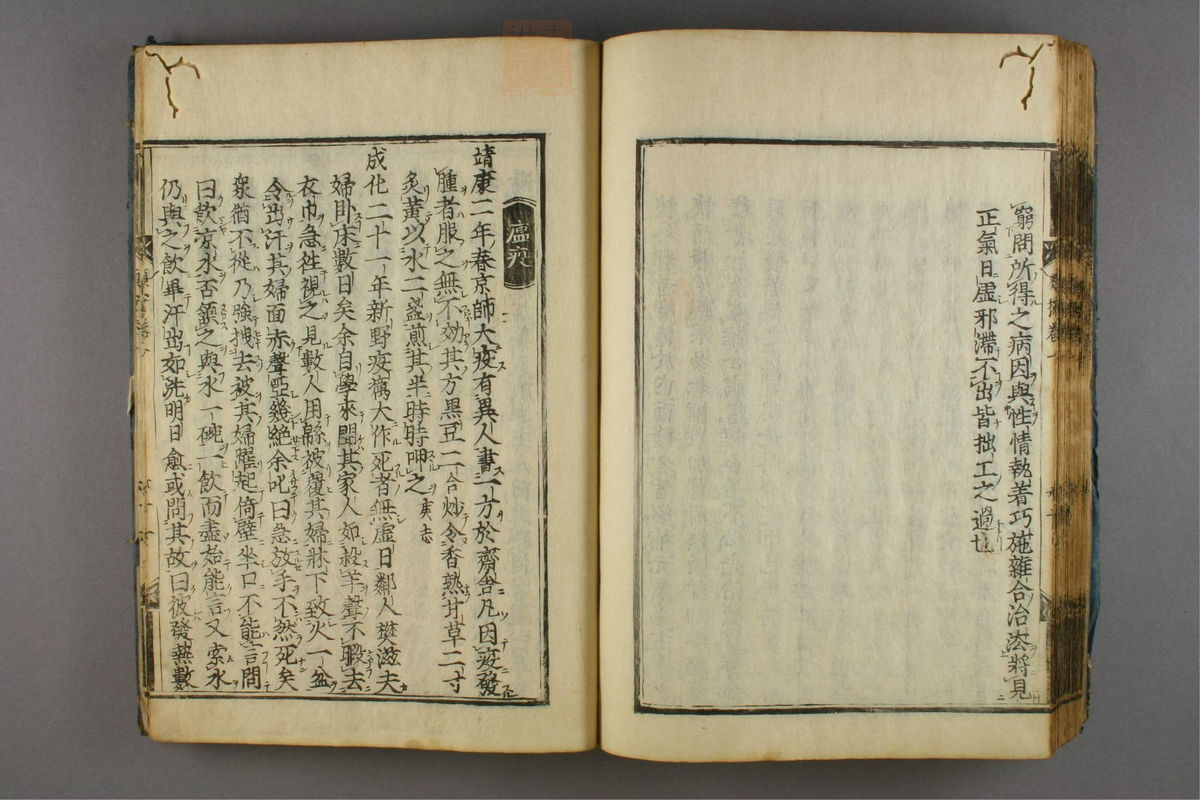 窮問所得之病因與性情執着巧施雜合治法將見
正氣日虛邪滯不出皆拙工之過也
瘟疫
靖康二年春京師大疫有異人書一方於齋舍凡因疫發
腫者服之無不効其方黑豆二合炒令香熟甘草二寸
炙黃以水二盞煎其半時時呷之庚志
成化二十一年新野疫癘大作死者無虛日鄰人樊滋夫
婦卧床數日矣余自學來聞其家人如殺羊聲不暇去
衣巾急徃視之見數人用綿被覆其婦牀下致火一盆
令出汗其婦面赤聲啞幾絶余叱曰急放手不然死矣
衆猶不從乃強拽去被其婦躍起倚壁坐口不能言問
曰飲凉水否頷之與水一碗一飲而盡始能言又索水
仍與之飲畢汗出如洗明日愈或問其故曰彼發熱數